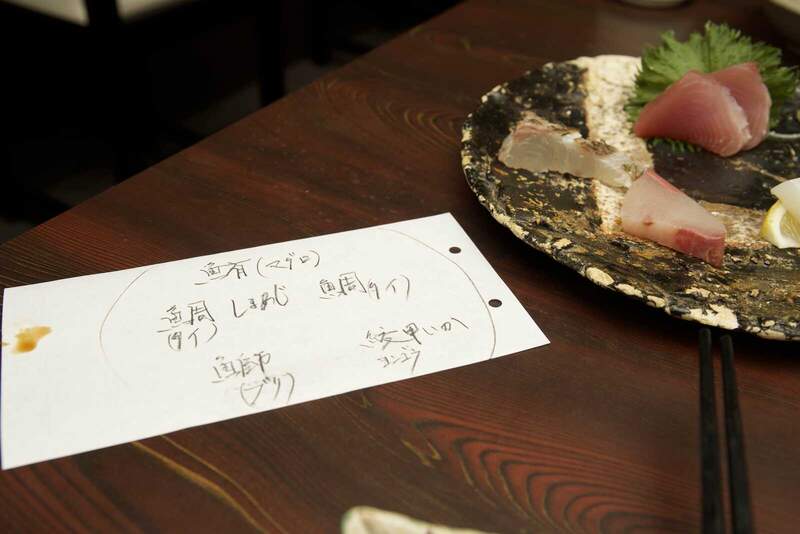 鮪(マグロ)
鯛 しまあじ 鯛(タイ)
(タイ)
紋甲いか
モンゴウ
鰤
(ブリ)